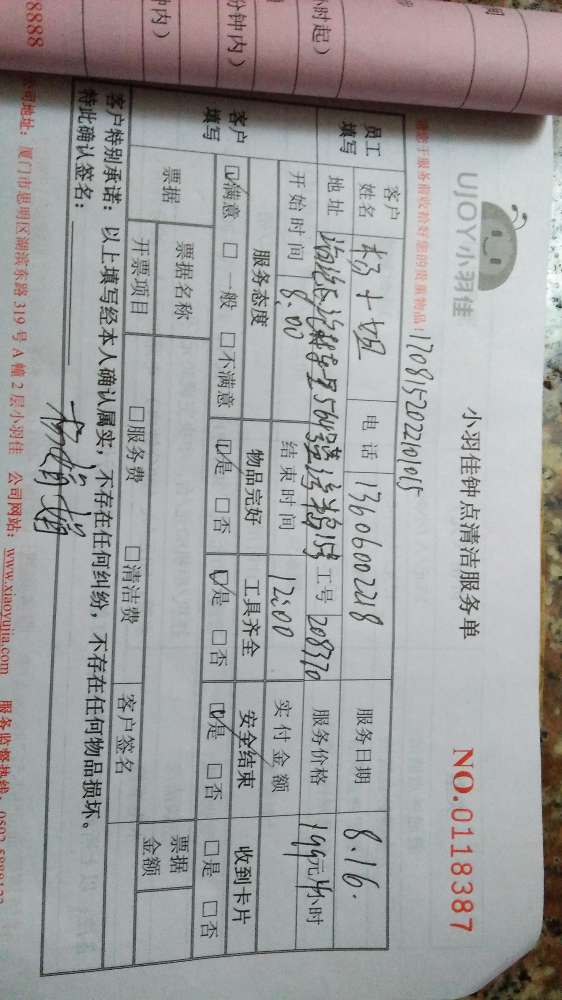 8888
钟内)
分钟内)
小时起)
UJOY小羽佳
小羽佳钟点清洁服务单
NO.0118387
于服务前收拾好您的贵重物品!
170815202210101
员工
填写
客户
姓名
杨小姐
电话
13606002218
服务日期
8.16.
地址
工号
208370
服务价格
199元/小时
开始时间
8:00
结束时间
12:00
实付金额
客户
填写
服务态度
物品完好
工具齐全
安全结束
收到卡片
☑满意 □一般 □不满意
☑是 □否
☑是 □否
☑是 □否
□是 □否
票据
票据名称
票据
金额
开票项目
□服务费
□清洁费
客户签名
客户特别承诺:以上填写经本人确认属实,不存在任何纠纷,不存在任何物品损坏。
特此确认签名:
司地址:厦门市思明区湖滨东路 319 号 A 幢 2 层小羽佳 公司网站:www.xiaoyujia.com 服务监督热线: